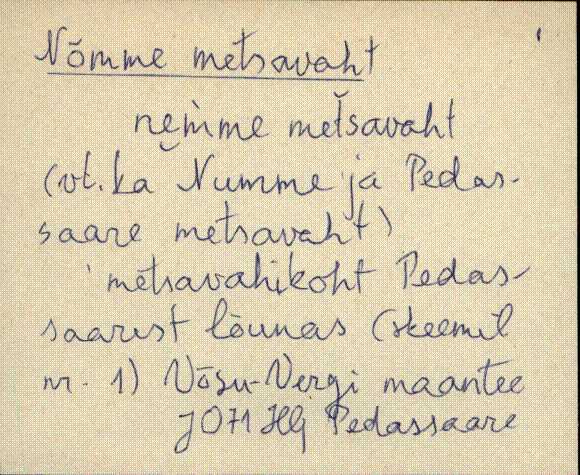 Nõmme metsavaht
nem̀me metšavaht
(vt. ka Numme ja Pedas-
saare metsavaht)
metsavahikoht Pedas-
saarest lõunas (skeemil
nr. 1) Võsu-Vergi maantee
J071 Hlj Pedassaare